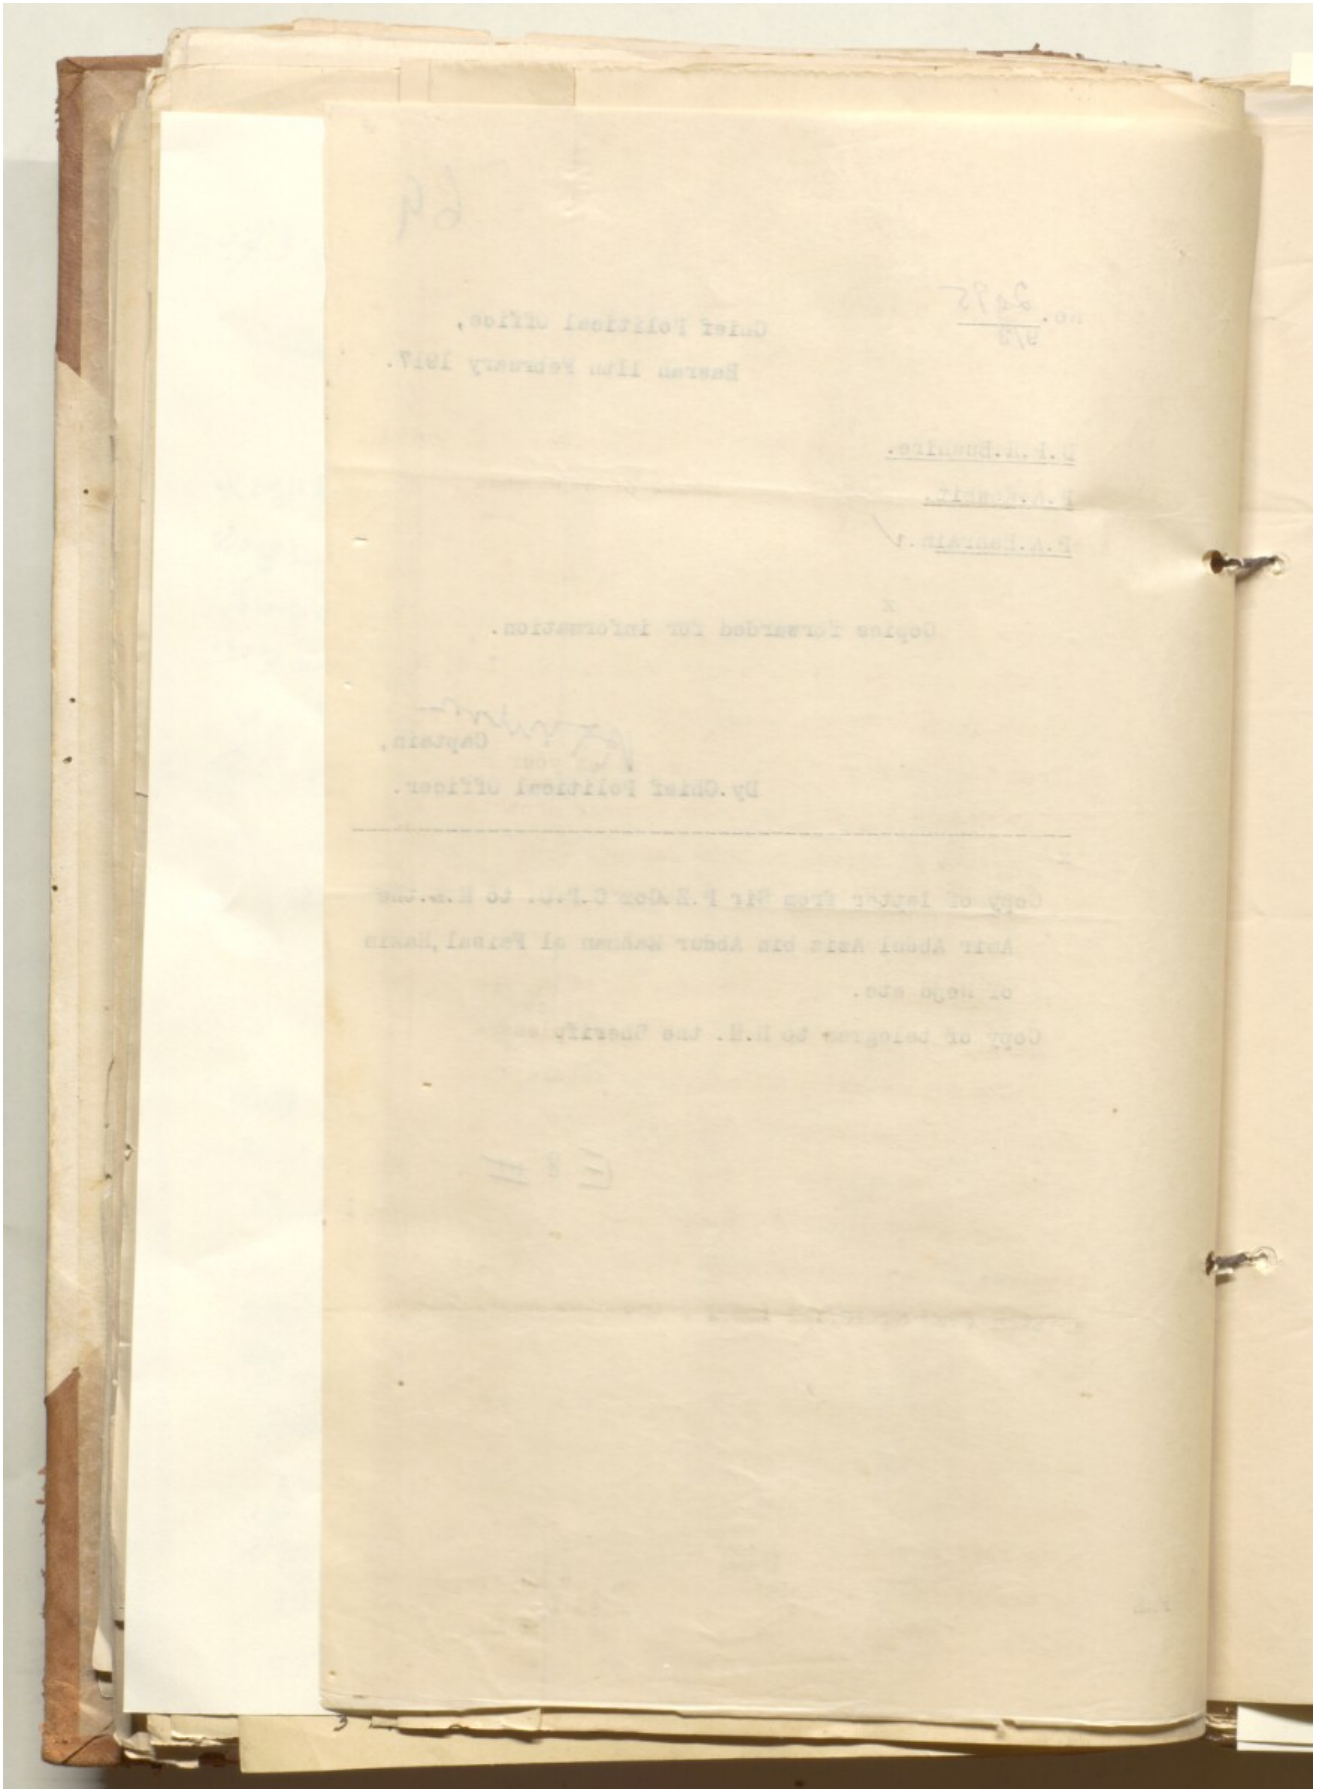 64
No. 2495
9/3
Chief Political Office,
Basrah 11th February 1917.
D.P.R. Bushire.
P.A. Kuwait.
P.A. Bahrain.
x
Copies forwarded for information.
Captain,
Dy. Chief Political Officer.
Copy of letter from Sir P.Z. Cox C.P.O. to H.E. the
Amir Abdul Aziz bin Abdur Rahman al Faisal, Hakim
of Nejd etc.
Copy of telegram to H.H. the Sherif